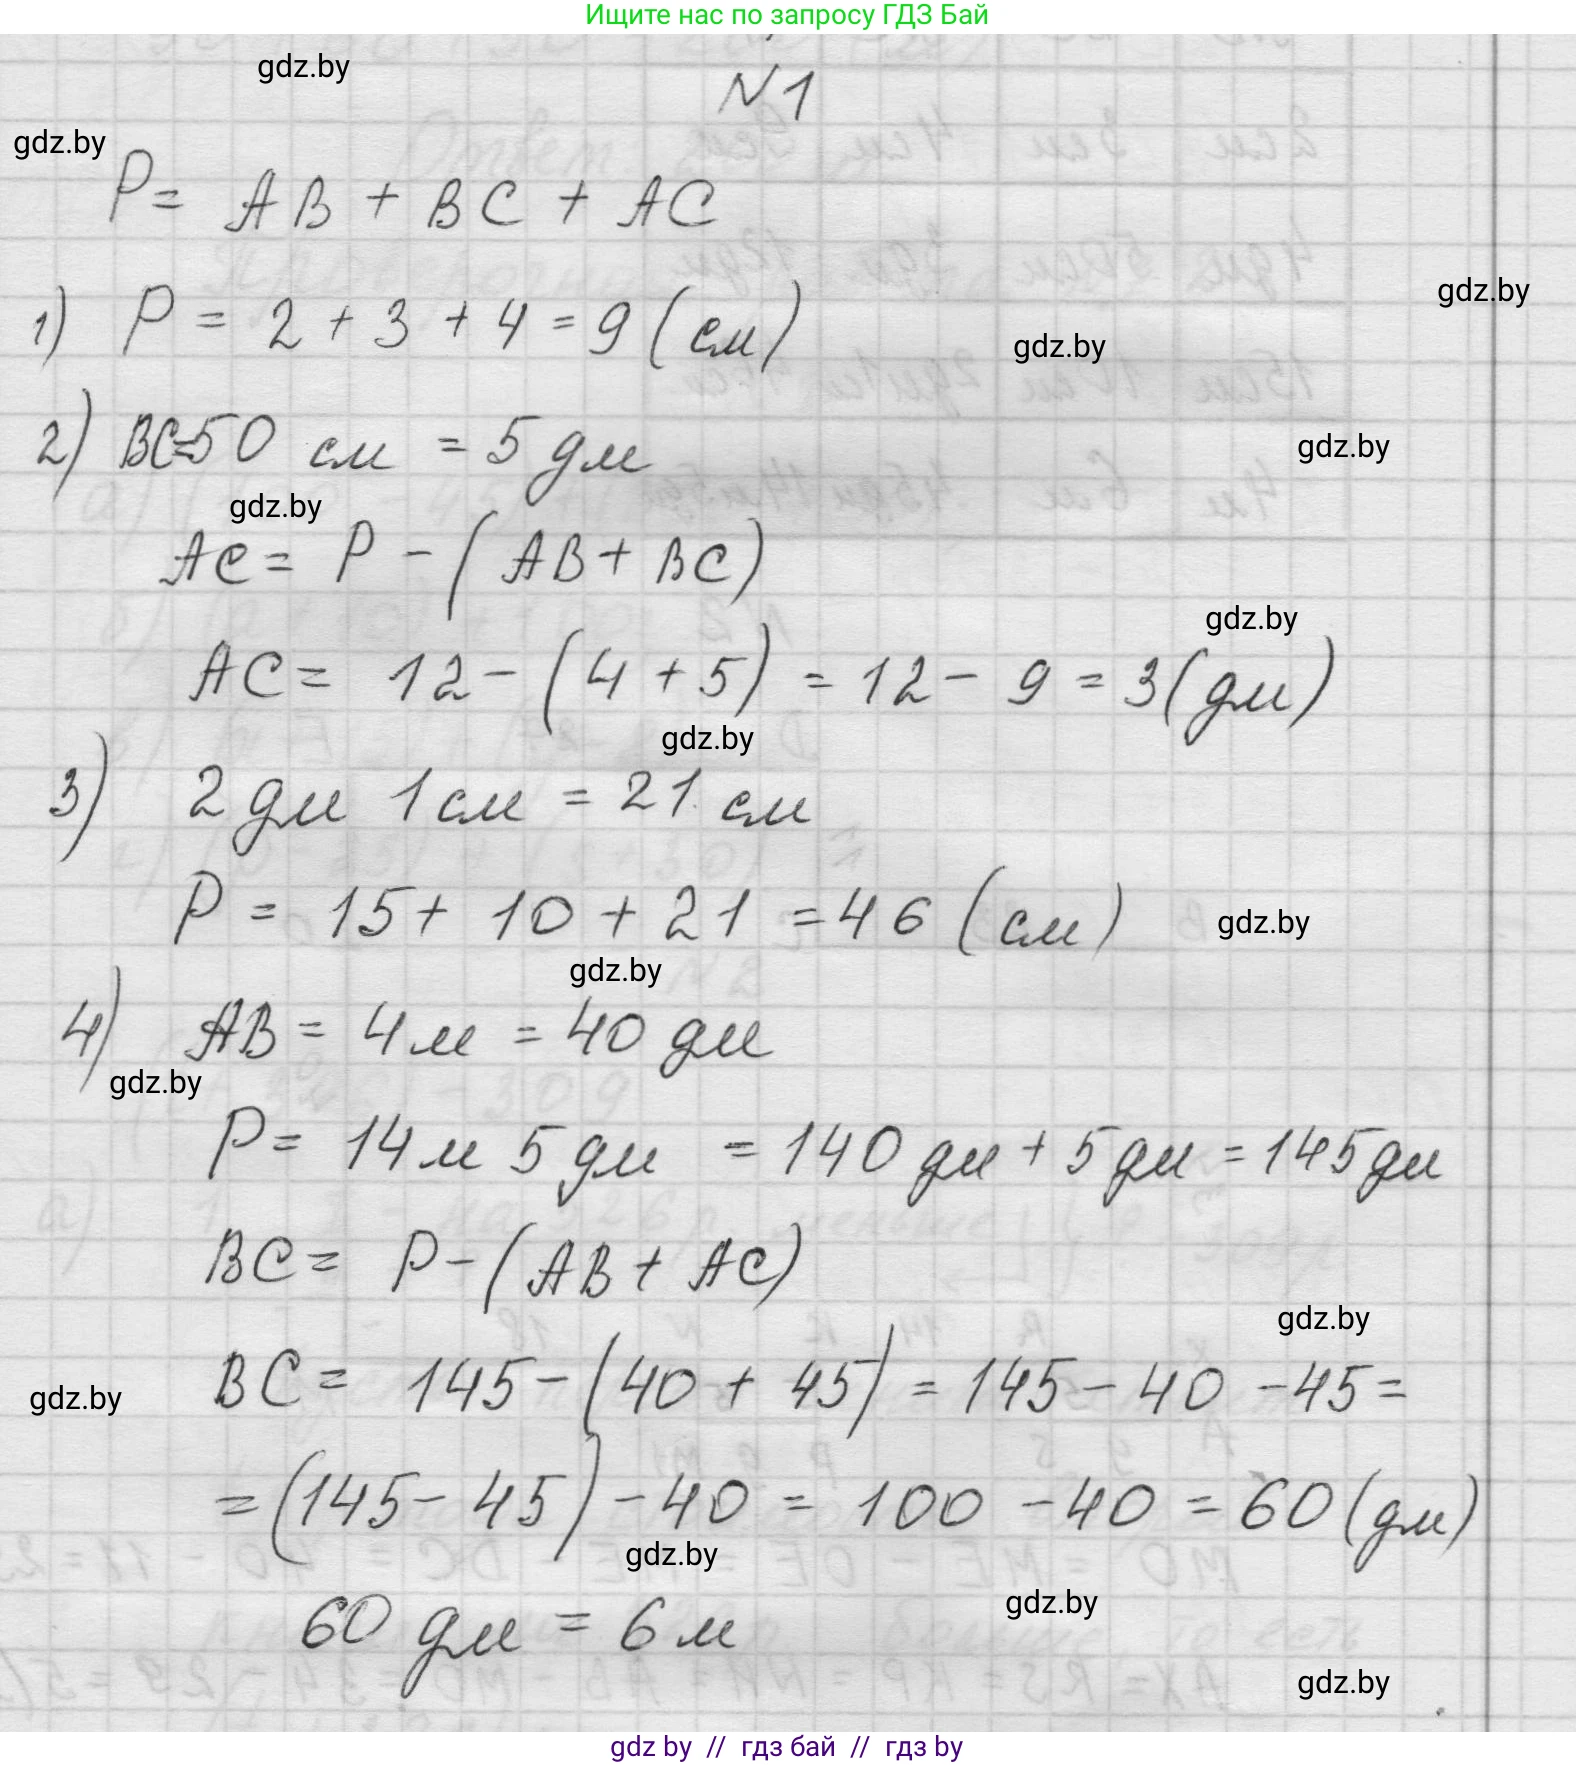 Ищите нас по запросу ГДЗ Бай
gdz.by
N 1
gdz.by
P = AB + BC + AC
gdz.by
1) P = 2 + 3 + 4 = 9 (см)
gdz.by
2) BC=50 см = 5 дм
gdz.by
gdz.by
AC = P - (AB + BC)
gdz.by
AC = 12 - (4 + 5) = 12 - 9 = 3 (дм)
gdz.by
3) 2 дм 1 см = 21 см
P = 15 + 10 + 21 = 46 (см)
gdz.by
gdz.by
4) AB = 4 м = 40 дм
gdz.by
P = 14 м 5 дм = 140 дм + 5 дм = 145 дм
BC = P - (AB + AC)
gdz.by
BC = 145 - (40 + 45) = 145 - 40 - 45 =
gdz.by
= (145 - 45) - 40 = 100 - 40 = 60 (дм)
gdz.by
gdz.by
60 дм = 6 м
gdz.by
gdz by // гдз бай // гдз by